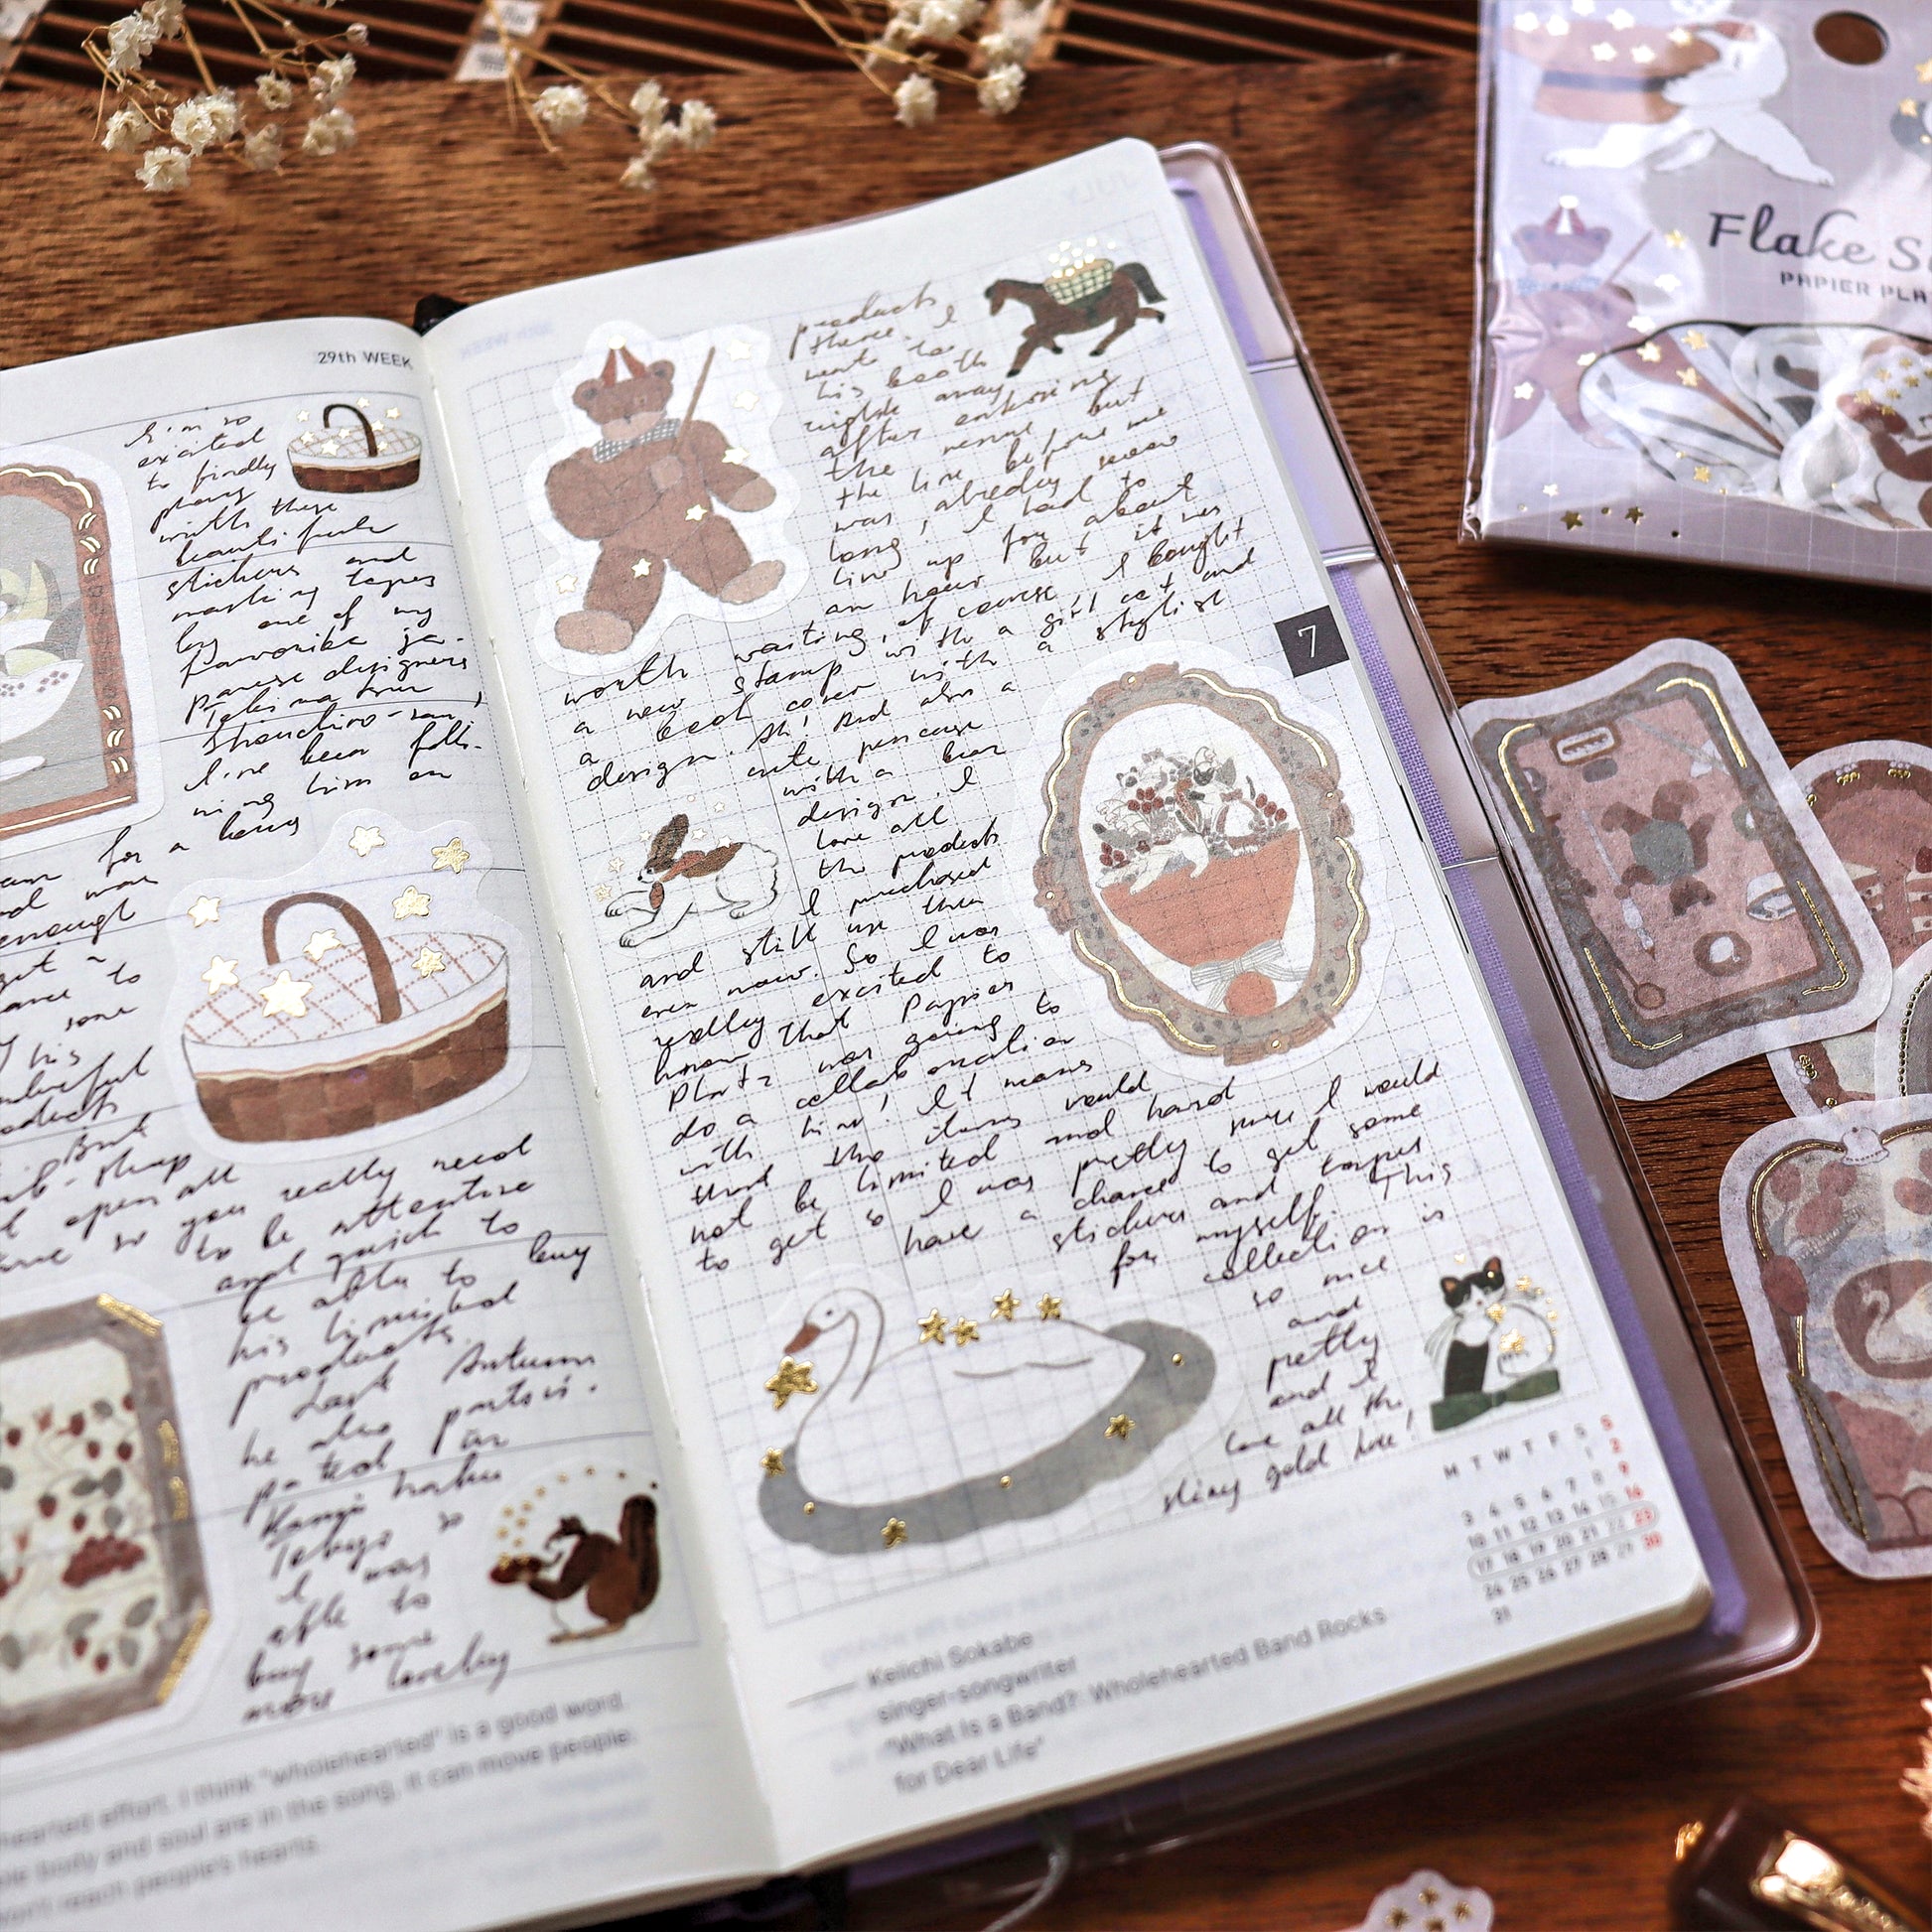 29th WEEK
I'm so
excited
to finally
play
with these
beautiful
stickers and
masking tapes
by one of my
favorite ja-
panese designers
Shauchiro-san,
I've been follo-
wing him on
for a long
and was
enough
get a
chance to
some
his
wonderful
products
But
web-shop
open all
so you really need
to be attentive
and quick to
be able to buy
his limited
products.
Last Autumn
he also partici-
pated für
Kami haku
Tokyo so
I was
able to
buy some
more lovely
hearted effort. I think "wholehearted" is a good word.
body and soul are in the song, it can move people.
won't reach people's hearts.
products
there. I
went to
his booth
right away
after entering
the venue but
the line before me
was already sooo
long, I had to
line up for about
an hour but it was
worth waiting, of course, I bought
a new stamp with a girl cat and
a book cover with a stylish
design. Ah! And also a
cute pencase
with a bear
design. I
love all
the products
I purchased
and still use them
even now. So I was
really excited to
know that Papier
Platz was going to
do a collaboration
with him! It means
that the items would
not be limited and hard
to get so I was pretty sure I would
have a chance to get some
stickers and tapes
for myself. This
collection is
so nice
and
pretty
and I
love all the
shiny gold here!
7
M T W T F S S
1 2
3 4 5 6 7 8 9
10 11 12 13 14 15 16
17 18 19 20 21 22 23
24 25 26 27 28 29 30
31
Keiichi Sokabe
singer-songwriter
"What Is a Band?: Wholehearted Band Rocks
for Dear Life"
Flake
PAPIER PLA